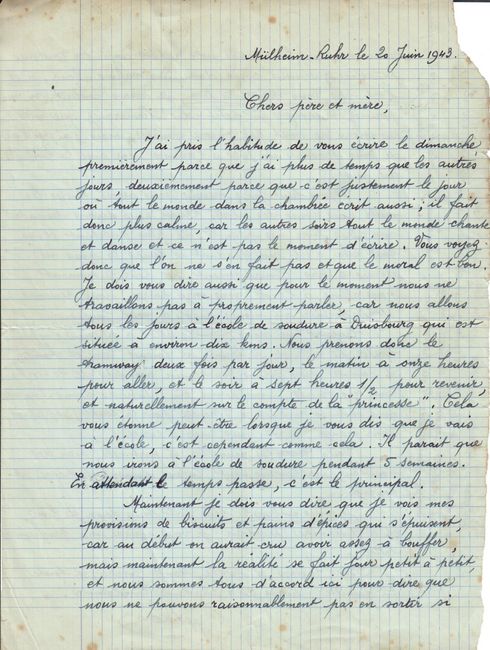 Mülheim-Ruhr le 20 Juin 1943.
Chers père et mère,
J'ai pris l'habitude de vous écrire le dimanche,
premièrement parce que j'ai plus de temps que les autres
jours, deuxièmement parce que c'est justement le jour
où tout le monde dans la chambrée écrit aussi; il fait
donc plus calme, car les autres soirs tout le monde chante
et danse et ce n'est pas le moment d'écrire. Vous voyez
donc que l'on ne s'en fait pas et que le moral est bon.
Je dois vous dire aussi que pour le moment nous ne
travaillons pas à proprement parler, car nous allons
tous les jours à l'école de soudure à Duisbourg qui est
située à environ dix kms. Nous prenons donc le
tramway deux fois par jour, le matin à onze heures
pour aller, et le soir à sept heures 1/2 pour revenir,
et naturellement sur le compte de la "princesse". Cela
vous étonne peut être lorsque je vous dis que je vais
à l'école, c'est cependant comme cela. Il parait que
nous irons à l'école de soudure pendant 5 semaines.
En attendant le temps passe, c'est le principal.
Maintenant je dois vous dire que je vois mes
provisions de biscuits et pains d'épices qui s'épuisent,
car au début on aurait cru avoir assez à bouffer,
mais maintenant la réalité se fait jour petit à petit,
et nous sommes tous d'accord ici pour dire que
nous ne pouvons raisonnablement pas en sortir si